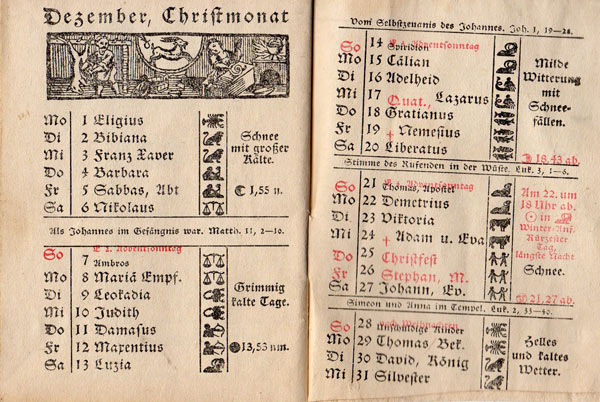 Dezember, Christmonat
Mo 1 Eligius
Di 2 Bibiana
Mi 3 Franz Xaver
Do 4 Barbara
Fr 5 Sabbas, Abt
Sa 6 Nikolaus
Schnee
mit großer
Kälte.
1,55 n.
Als Johannes im Gefängnis war. Matth. 11, 2—10.
So 7 E 2. Adventsonntag
Ambros
Mo 8 Mariä Empf.
Di 9 Leokadia
Mi 10 Judith
Do 11 Damasus
Fr 12 Maxentius
Sa 13 Luzia
Grimmig
kalte Tage.
13,53 nm.
Vom Selbstzeugnis des Johannes. Joh. 1, 19—28.
So 14 E 3. Adventsonntag
Spiridion
Mo 15 Cälian
Di 16 Adelheid
Mi 17 Quat., Lazarus
Do 18 Gratianus
Fr 19 † Nemesius
Sa 20 Liberatus
Milde
Witterung
mit
Schnee-
fällen.
18,43 ab.
Stimme des Rufenden in der Wüste. Luk. 3, 1—6.
So 21 E 4. Adventsonntag
Thomas, Apostel
Mo 22 Demetrius
Di 23 Viktoria
Mi 24 † Adam u. Eva
Do 25 Christfest
Fr 26 Stephan, M.
Sa 27 Johann, Ev.
Am 22. um
18 Uhr ab.
☉ in
Winter-Anf.
Kürzester
Tag,
längste Nacht
Schnee.
21,27 ab.
Simeon und Anna im Tempel. Luk. 2, 33—40.
So 28 nach Weihnachten
Unschuldige Kinder
Mo 29 Thomas Bek.
Di 30 David, König
Mi 31 Silvester
Helles
und kaltes
Wetter.